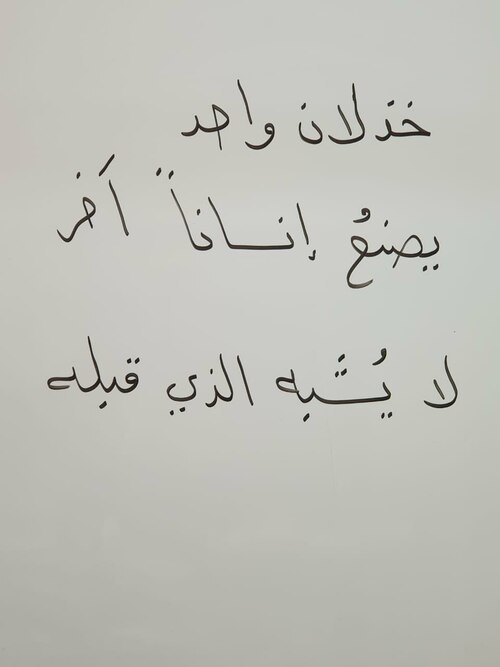 خذلان واحد
يصنعُ إنساناً آخر
لا يُشبه الذي قبله